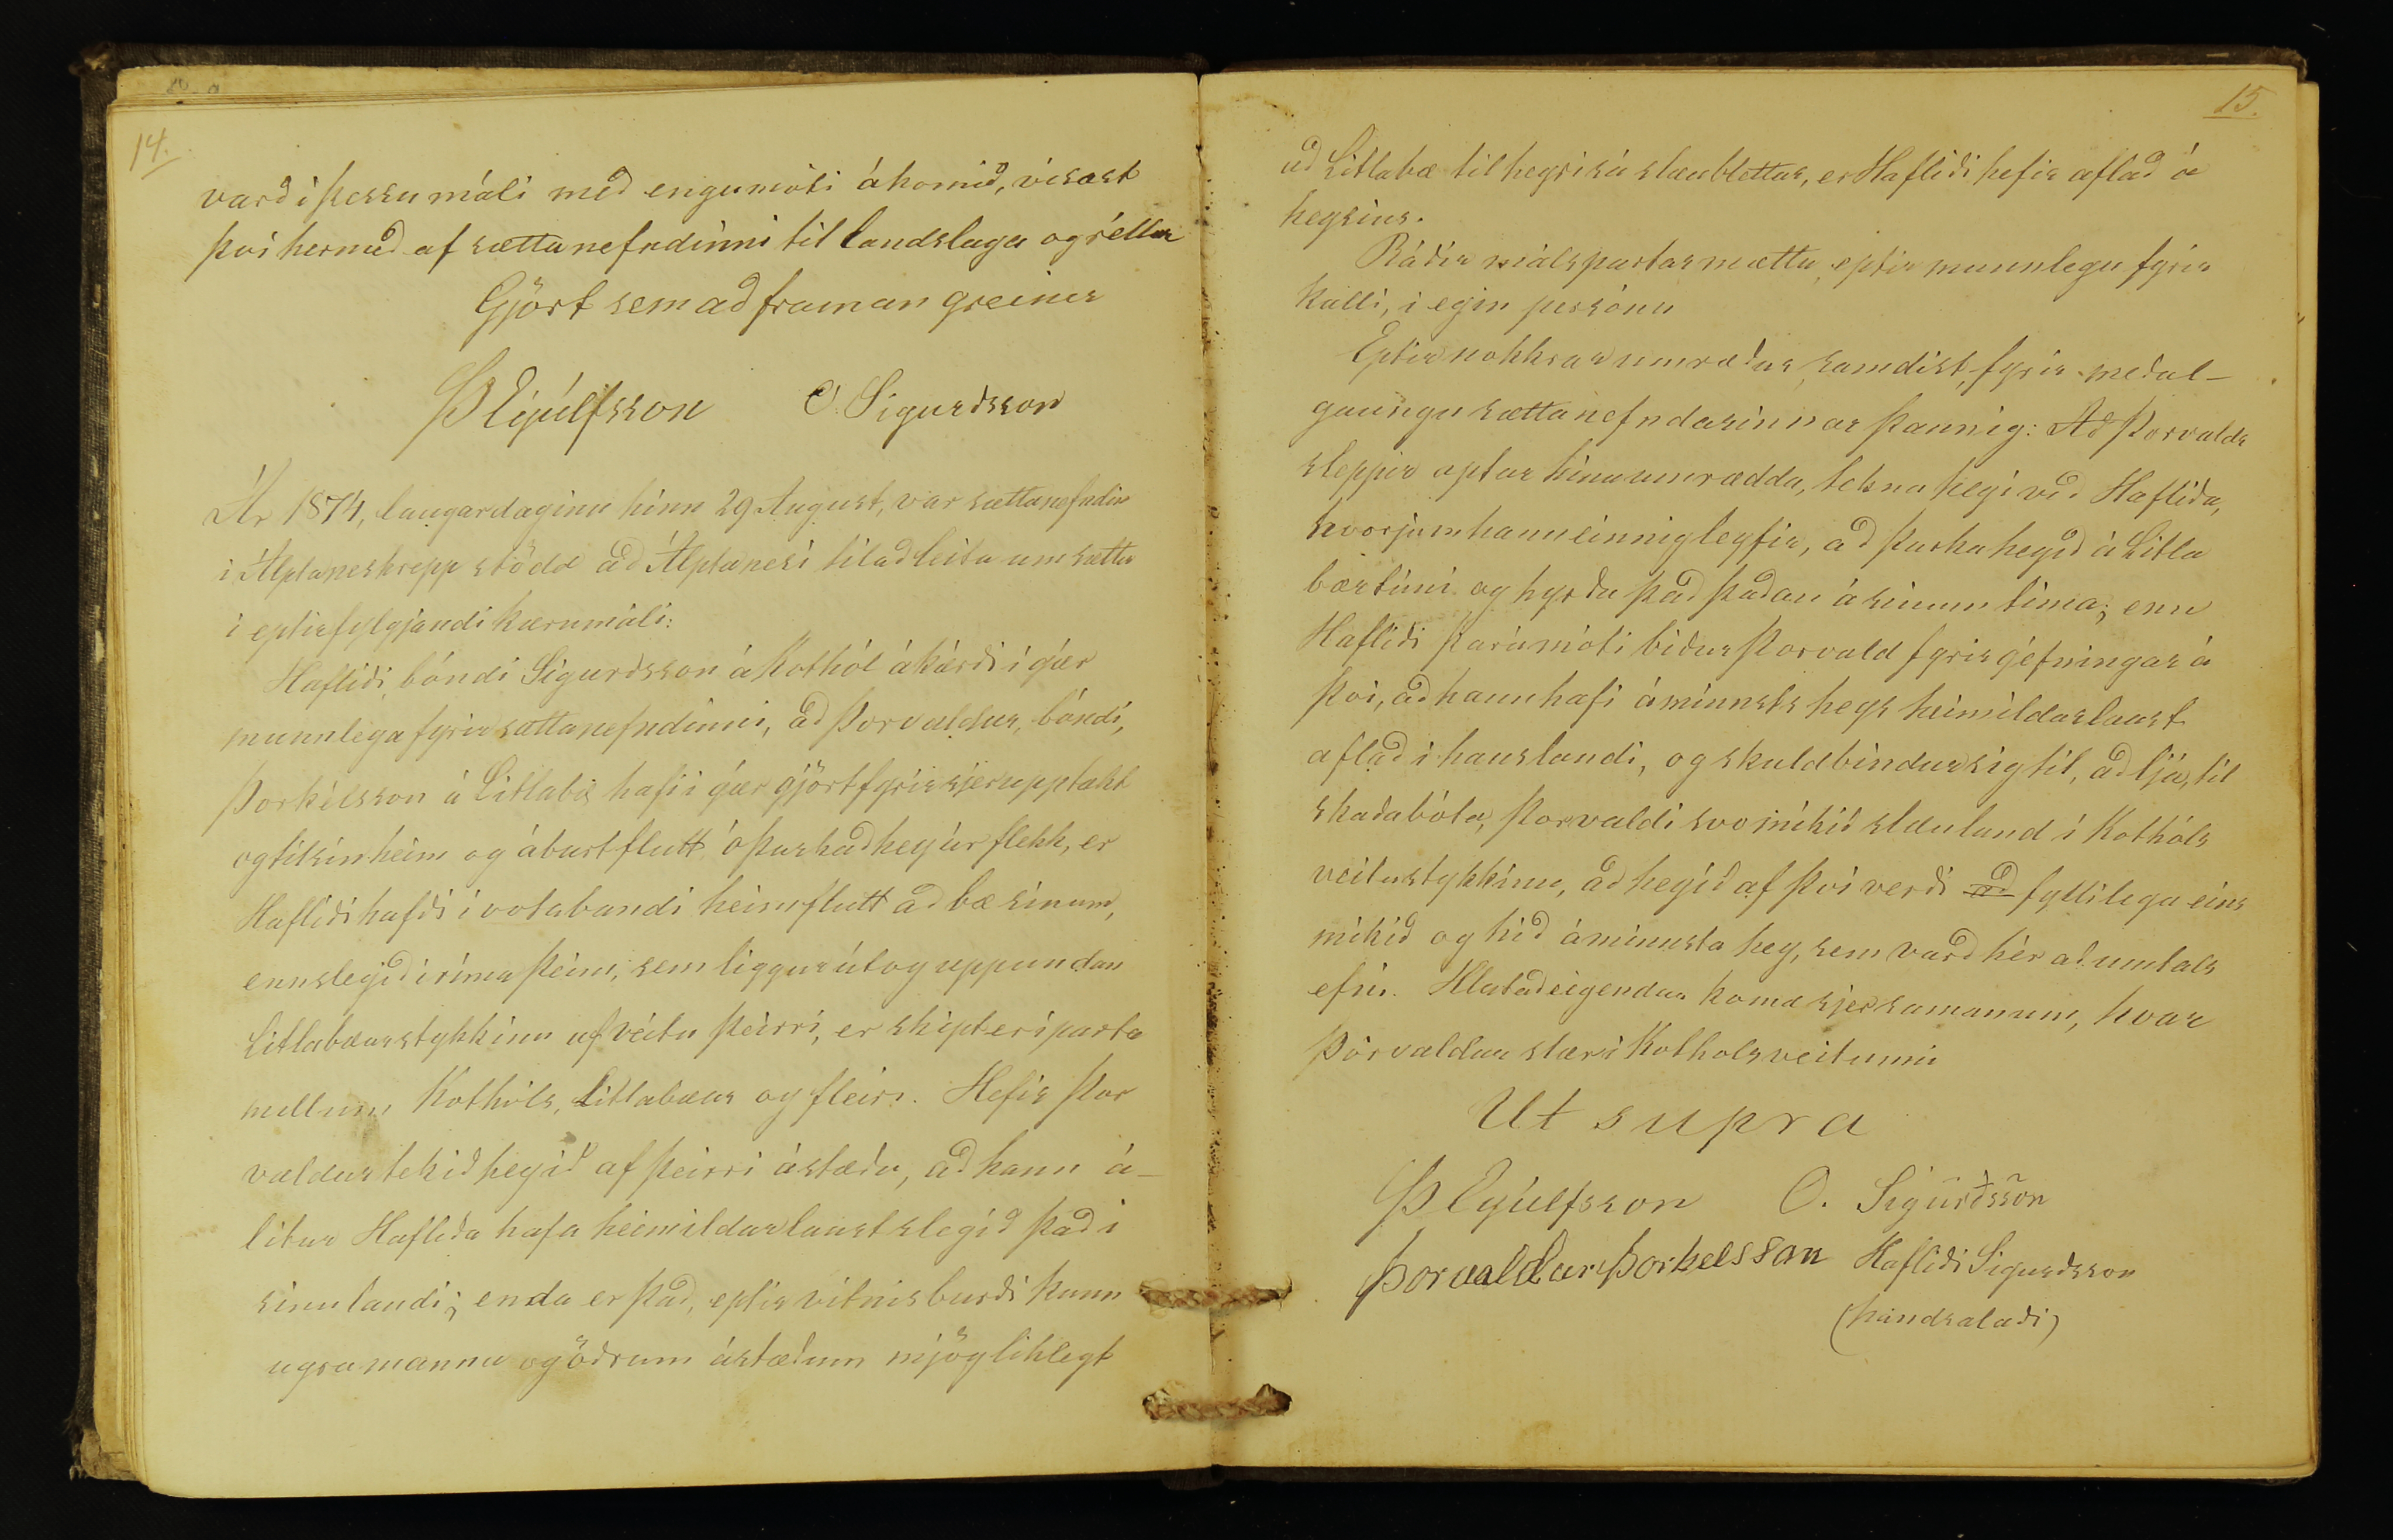 14.
varð í þessu máli með engu móti ákomið, vísast
því hermeð af sættanefndinni til landslaga og réttar
Gjört sem að framan greinir
Þ Eyúlfsson O. Sigurdsson
Ár 1874, laugardaginn hinn 29 August, var sættanefndin
í Álptaneshrepp stödd að Álptanesi til að leita um sættir
í eptirfylgjandi kærumáli:
Hafliði bóndi Sigurðsson á Kothól ákærði í gær
munnlega fyrir sættanefndinni, að Þorvaldur, bóndi,
Þorkelsson á Litlabæ hafi í gær gjört fyrir sjer upptækt
og til sín heim og áburt flutt óþurkað hey úr flekk, er
Hafliði hafði í votabandi heimflutt að bæ sínum,
enn slegið í ríma þeim, sem liggur út og uppundan
Litlabæarstykkinu af veitu þeirri, er skipt er í parta
millum Kothóls, Litlabæar og fleiri. Hefir Þor
valdur tekið heyið af þeirri ástæðu, að hann á-
lítur Hafliða hafa heimildarlaust slegið það í
sínu landi; enda er það, eptir vitnisburði kunn
ugra manna og öðrum ástæðum mjög líklegt
15.
að Litlabæ tilheyri sá slæublettur, er Hafliði hefir aflað á
heysins.
Báðir málspartar mættu, eptir munnlegu fyrir
kalli, í eigin persónu
Eptir nokkrar umræður, samdist, fyrir meðal-
gaungu sættanefndarinnar þannig: Að Þorvaldr
sleppir aptur hinu umrædda, tekna heyi við Hafliða,
hvorjum hann einnig leyfir, að þurka heyið á Litla
bæartúni og hyrða það þaðan á sínum tíma; enn
Hafliði þarámóti biður Þorvald fyrirgefningar á
því, að hann hafi áminnsts heys heimildarlaust
aflað í hans landi, og skuldbindur sig til, að ljá, til
skaðabóta, Þorvaldi svo mikið slæuland í Kothóls
veitustykkinu, að heyið af því verði að fyllilega eins
mikið og hið áminnsta hey, sem varð hér að umtals
efni. Hlutaðeigendur koma sjer saman um, hvar
Þorvaldur slær í Kothólsveitunni
Ut supra
Þ Eyúlfsson O. Sigurðsson
Þorvaldur Þorkelsson Hafliði Sigurðsson
(handsalaði)